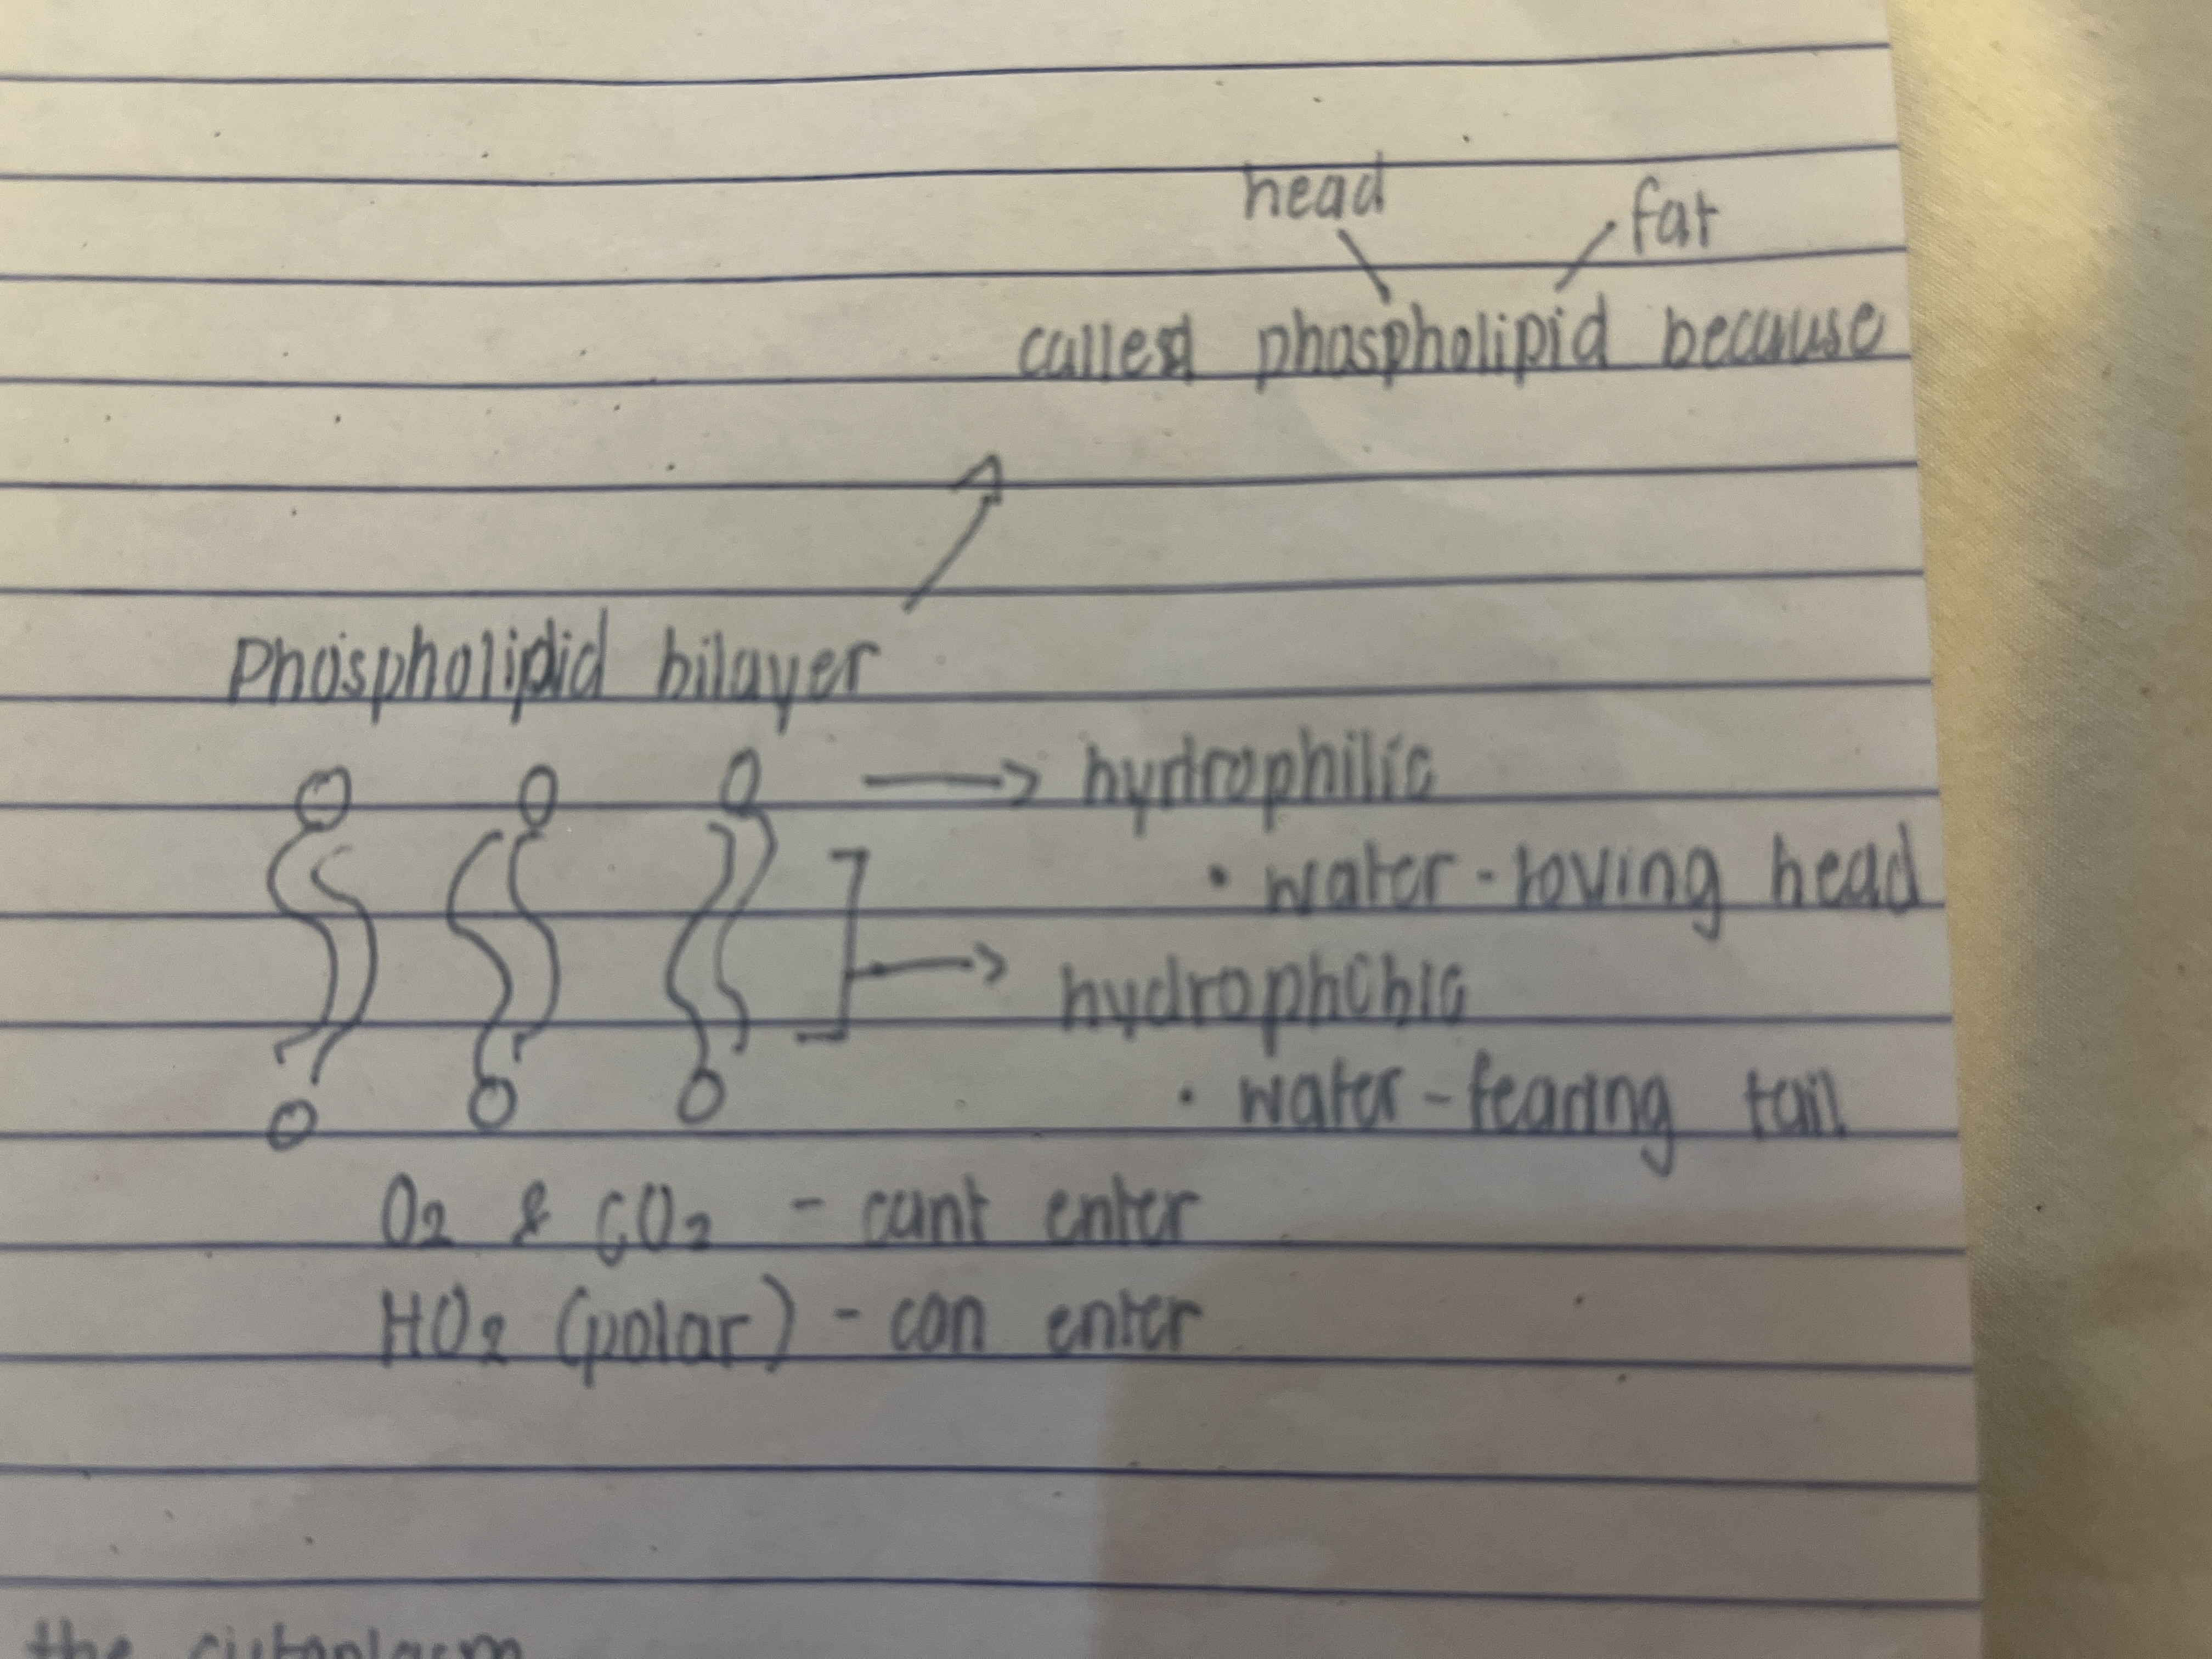 head
fat
called phospholipid because
Phospholipid bilayer
hydrophilic
• water-loving head
hydrophobic
• water-fearing tail
O2 & CO2 - cant enter
HO2 (polar) - can enter
the cytoplasm